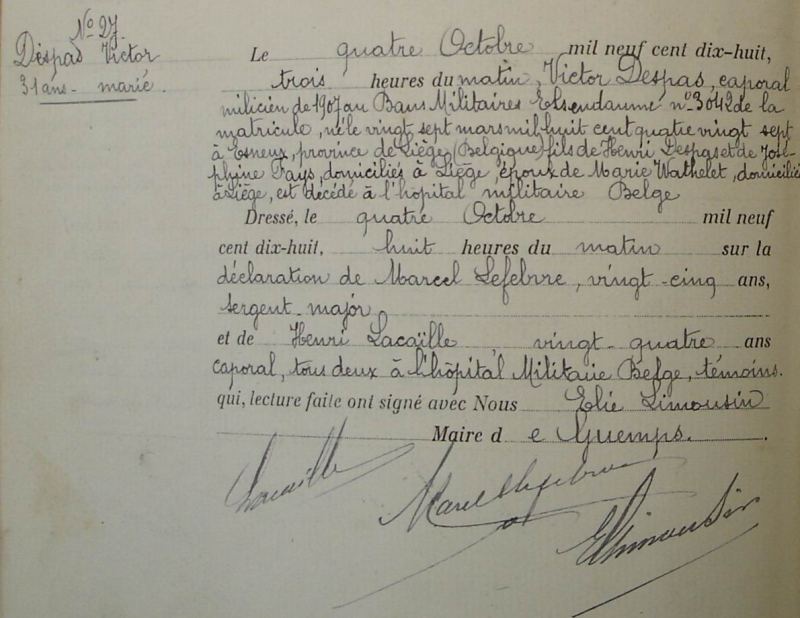 No 27.
Despas Victor
31 ans - marié.
Le quatre Octobre mil neuf cent dix-huit,
trois heures du matin, Victor Despas, caporal
milicien de 1907 au Bans Militaires no 3042 de la
matricule, né le vingt sept mars mil huit cent quatre vingt sept
à Esneux, province de Liège, (Belgique) fils de Henri Despas et de José-
phine Pays, domiciliés à Liège époux de Marie Wathelet, domicilié
à Liège, est décédé à l'hopital militaire Belge
Dressé, le quatre Octobre mil neuf
cent dix-huit, huit heures du matin sur la
déclaration de Marcel Lefebvre, vingt-cinq ans,
sergent-major
et de Henri Lacaïlle, vingt-quatre ans
caporal, tous deux à l'hôpital Militaire Belge, témoins.
qui, lecture faite ont signé avec Nous Elie Limousin
Maire de Guemps.
Lacaille
Marcel Lefebvre
E Limousin